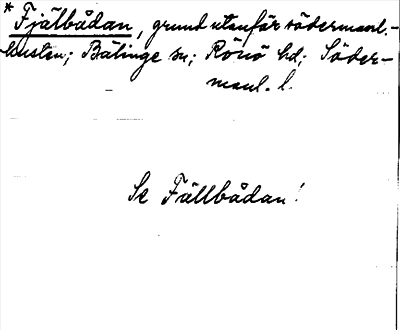 * Fjälbådan, grund utanför södermanl.-
kusten; Bälinge sn; Rönö hd; Söder-
manl. l.
Se Fällbådan!